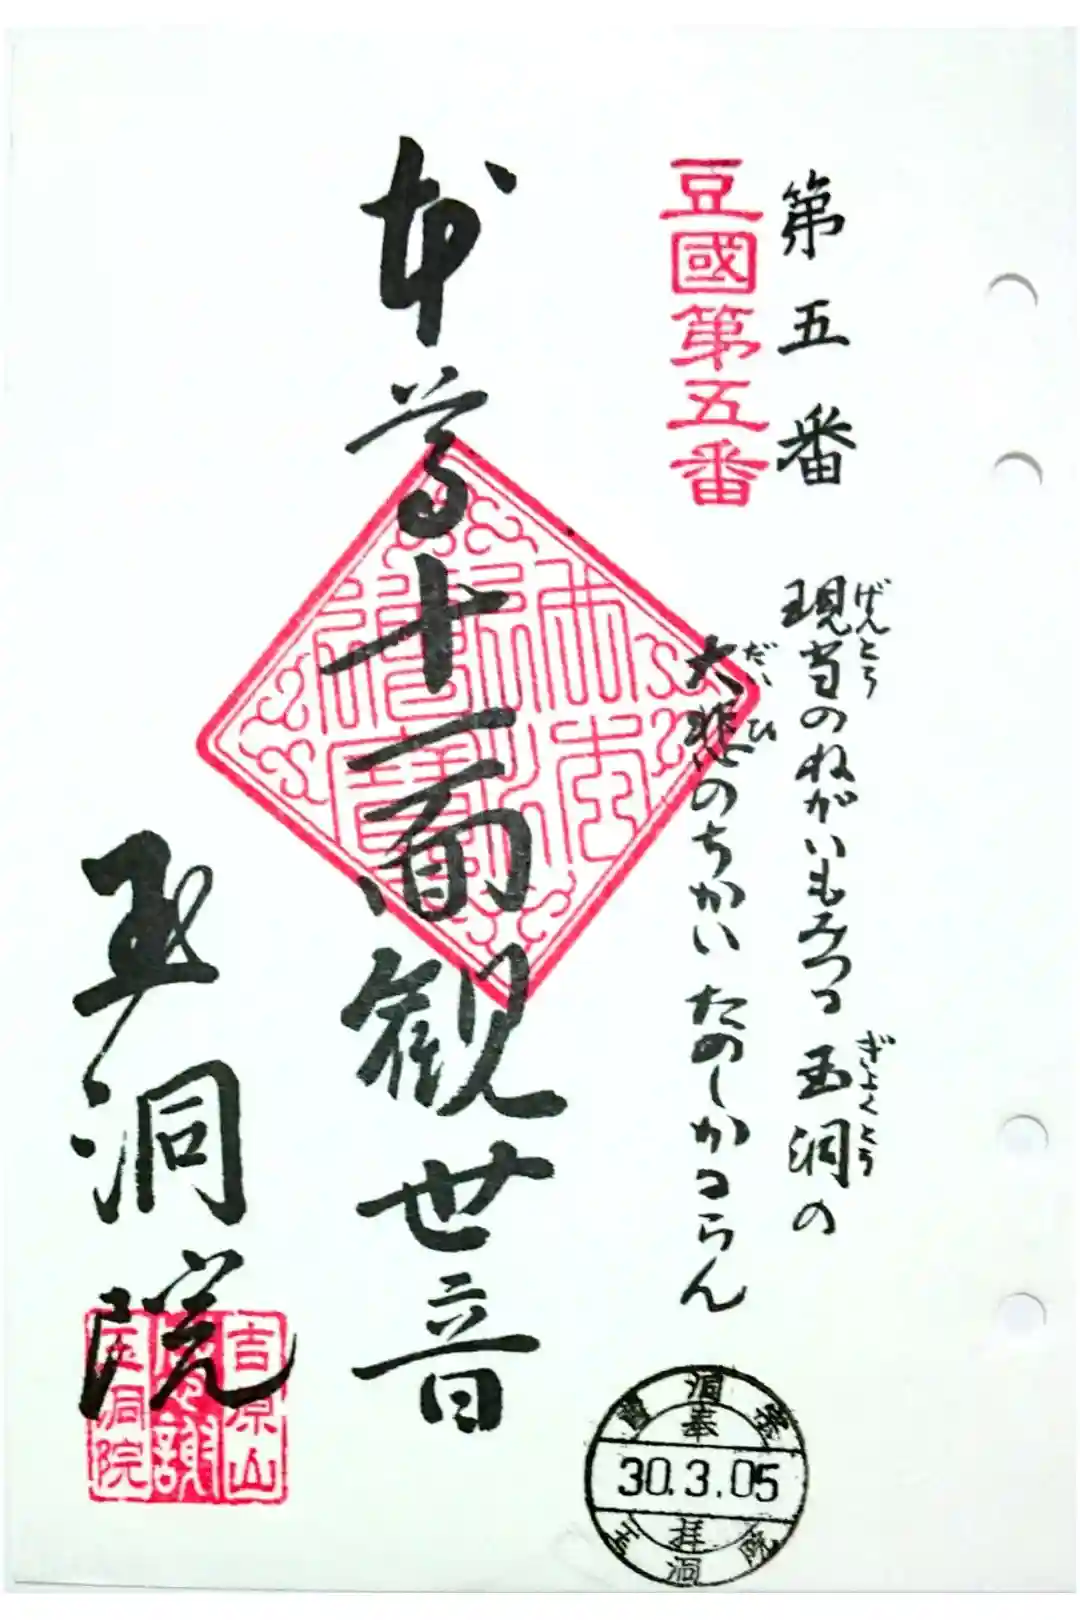 第五番
豆國第五番
現当のねがいもみつる玉洞の
げんとう
ぎょくとう
大悲のちかいたのしかるらん
だいひ
本尊十一面観世音
玉洞院
吉原山
感謝
玉洞院
奉
30.3.05
拝
玉洞院